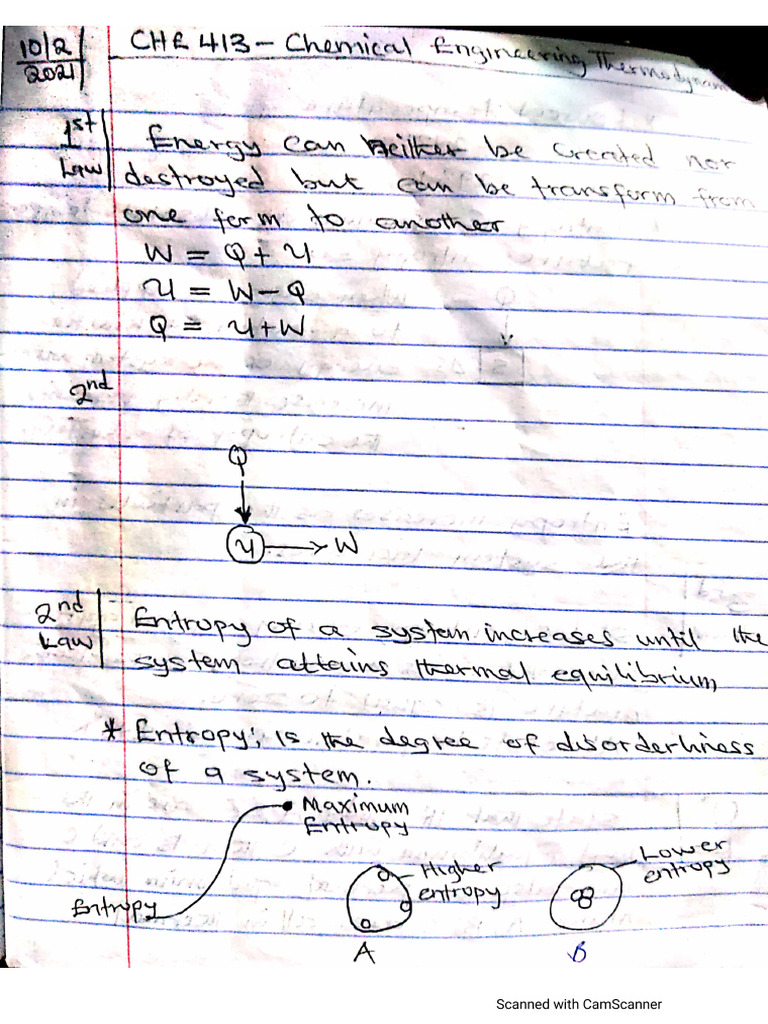 10/2
2021
CHE 413 - Chemical Engineering Thermodynam
1st
Law
Energy can neither be created nor
destroyed but can be transform from
one form to another
W = Q + U
U = W - Q
Q = U + W
2nd
Q
U → W
2nd
Law
Entropy of a system increases until the
system attains thermal equilibrium
* Entropy: Is the degree of disorderliness
of a system.
Maximum
Entropy
Entropy
Higher
entropy
A
Lower
entropy
B
Scanned with CamScanner